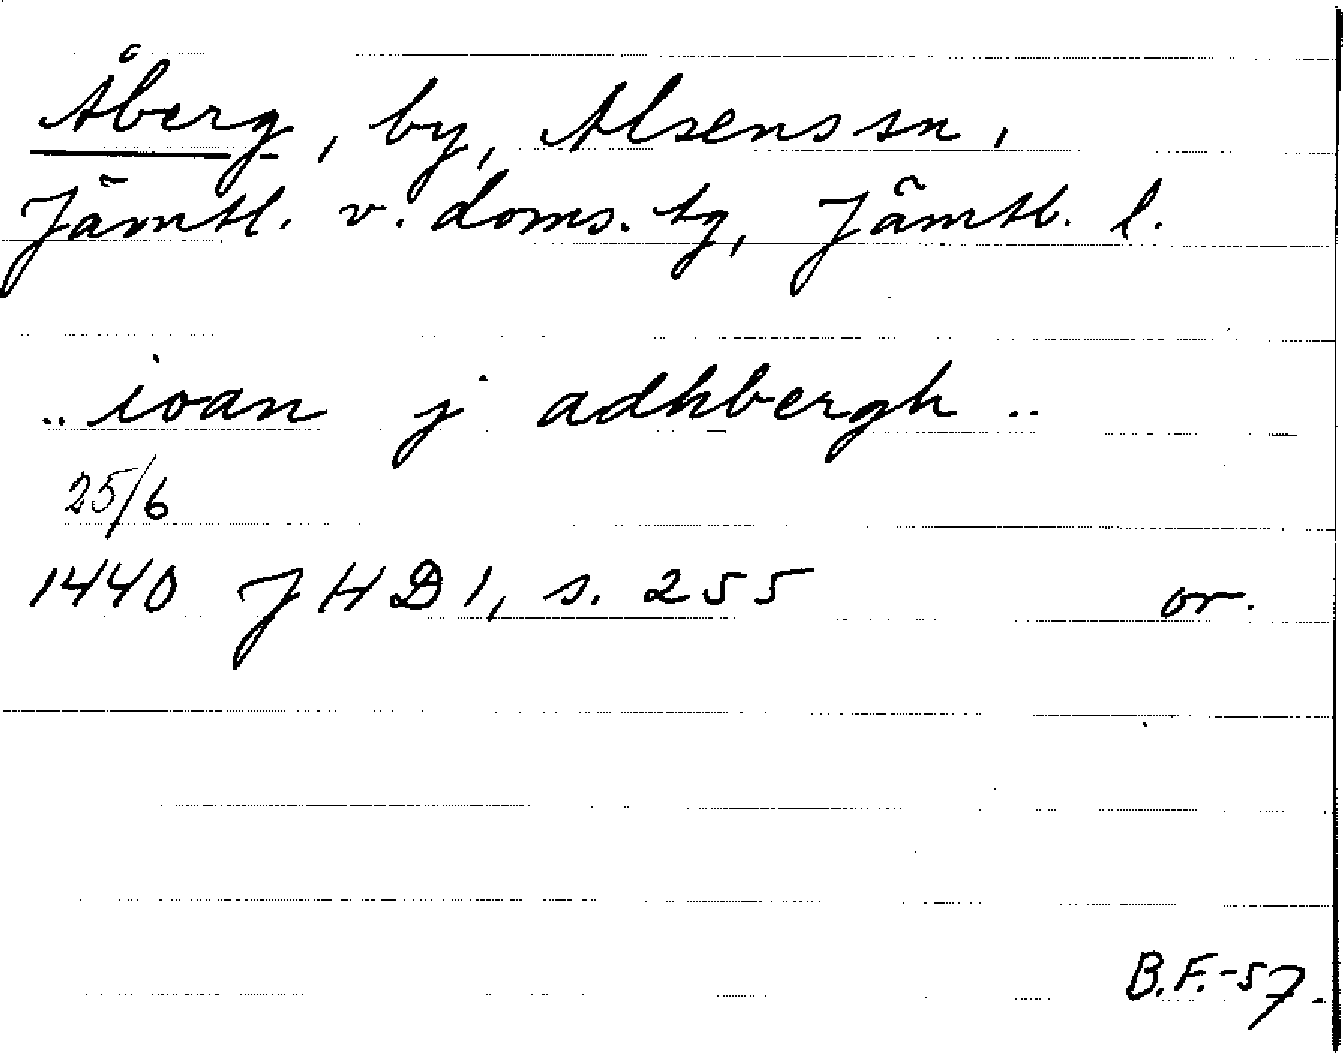 Åberg, by, Alsens sn,
Jämtl. v. doms. tg, Jämtl. l.
.. ioan j adhbergh ..
25/6
1440 JHD 1, s. 255 or.
B.F.-57.